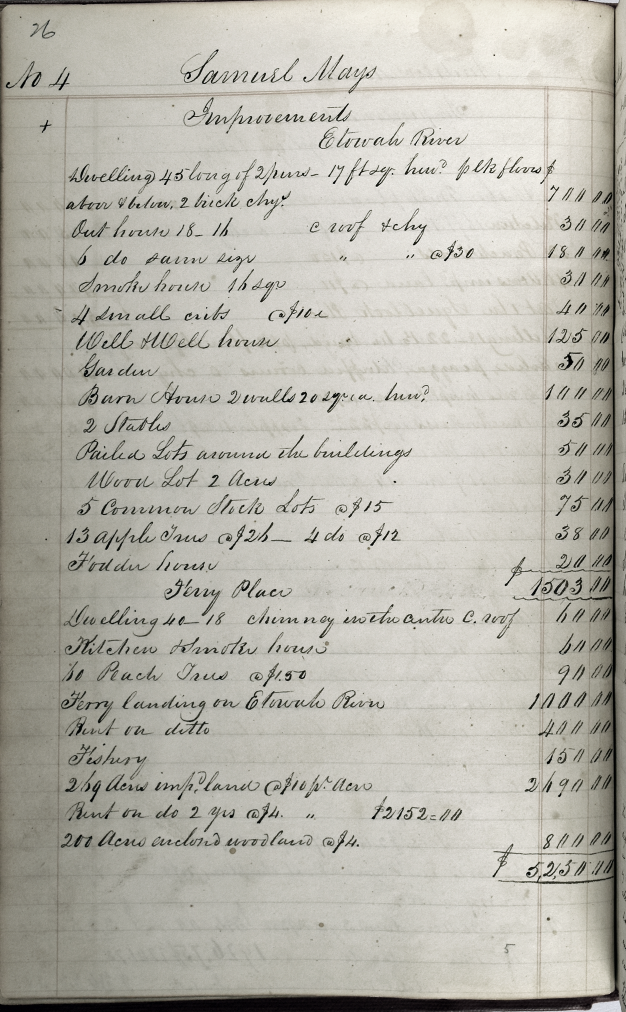 26
No 4 Samuel Mays
+ Improvements
Etowah River
Dwelling 45 long of 2 pens – 17 ft sqr. hewd plk floors $
above & below, 2 brick chys. 700 00
Out house 18–16 C roof & chy 30 00
6 do same size " " @$30 180 00
Smoke house 16 sqr 30 00
4 small cribs @$10 40 00
Well & Well house 125 00
Garden 50 00
Barn House 2 walls 20 sqr ea. hewd 100 00
2 Stables 35 00
Pailed Lots around the buildings 50 00
Wood Lot 2 Acres 30 00
5 Common Stock Lots @$15 75 00
13 apple Trees @$26 — 4 do @$12 38 00
Fodder house 20 00
Ferry Place $ 1503 00
Dwelling 40–18 chimney in the centre C. roof 60 00
Kitchen & Smoke house 60 00
60 Peach Trees @$1.50 90 00
Ferry landing on Etowah River 1000 00
Rent on ditto 400 00
Fishery 150 00
269 Acres impd land @$10 pr Acre 2690 00
Rent on do 2 yrs @$4. " $2152=00
200 Acres enclosed woodland @$4. 800 00
$ 5,250 00
5